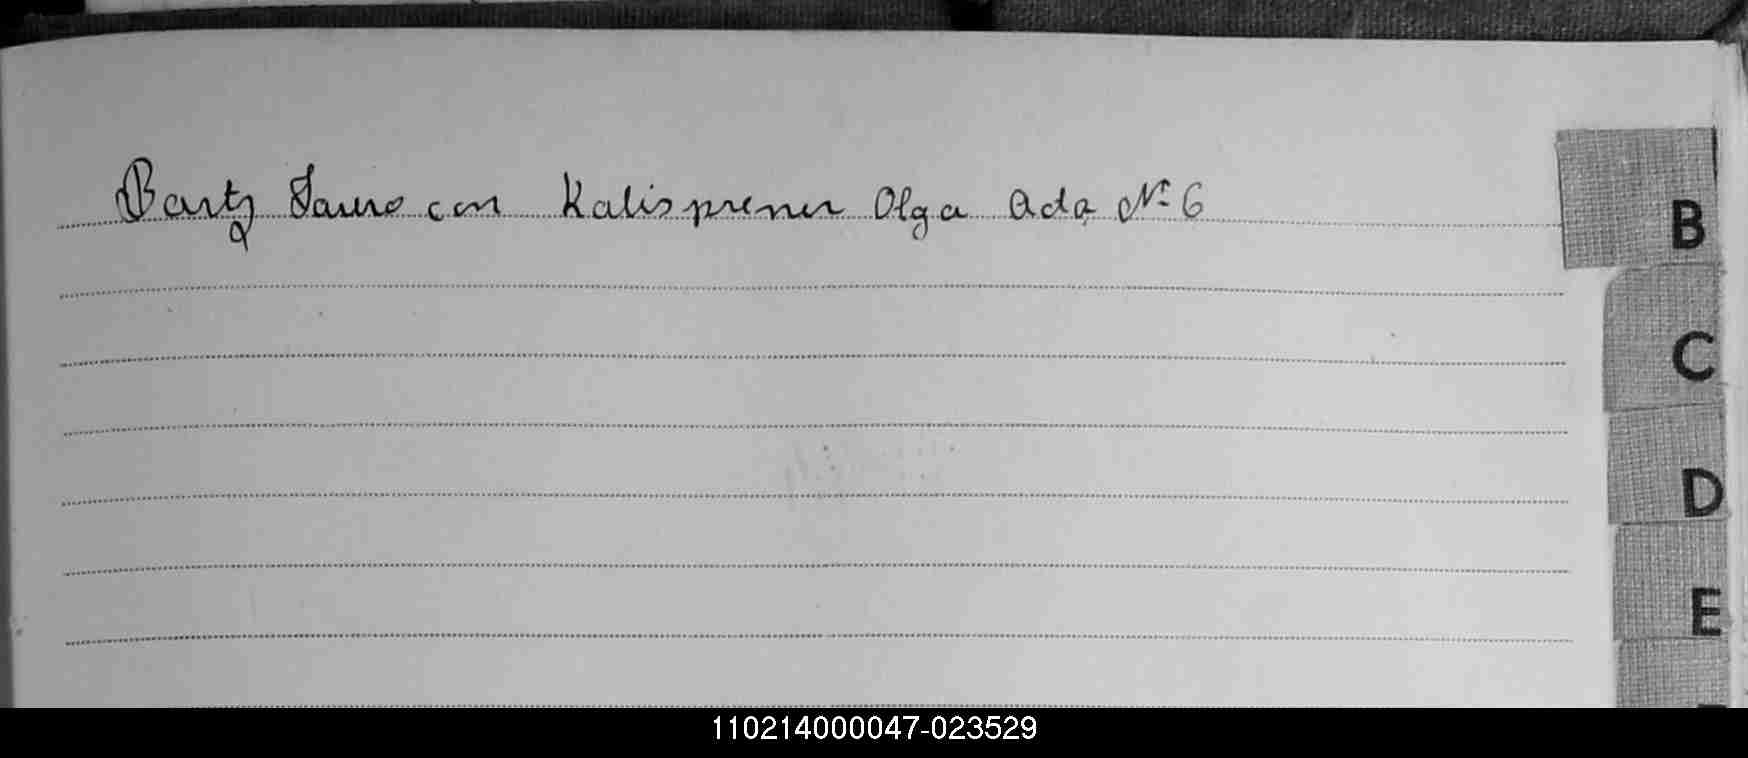 Bartz Lauro con Kalisprener Olga Ada Nº 6
B
C
D
E
110214000047-023529